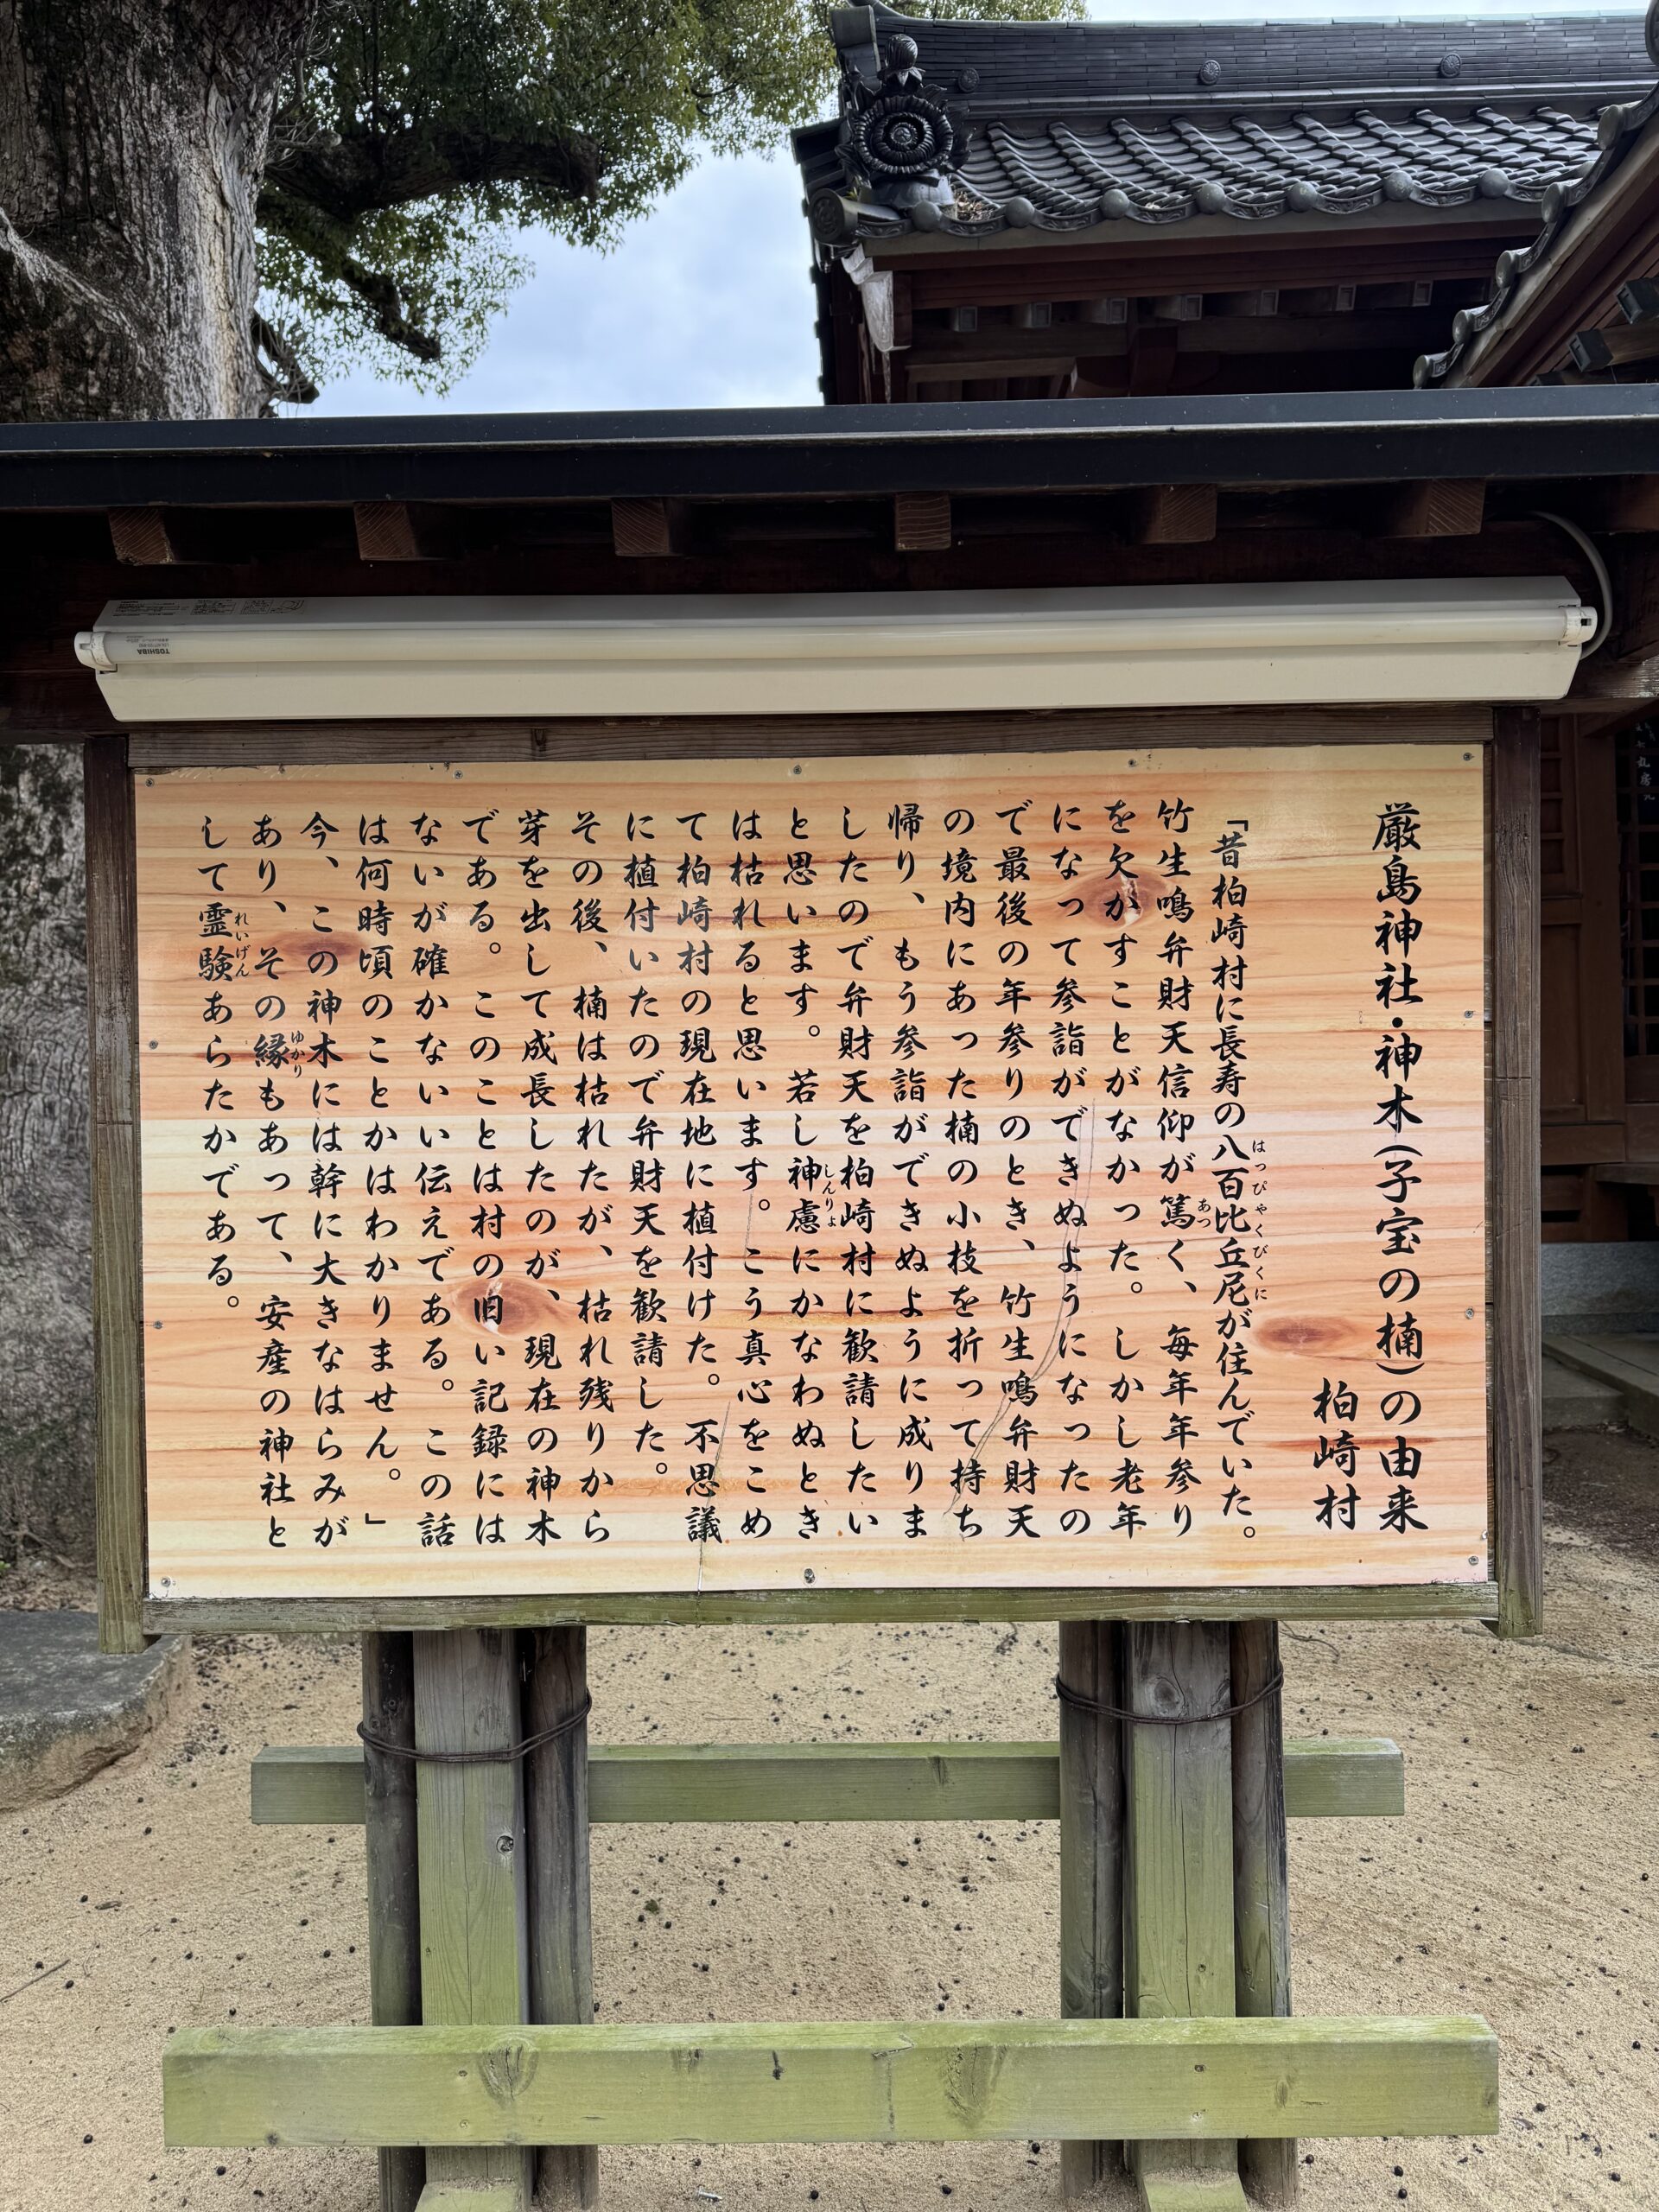 厳島神社・神木(子宝の楠)の由来
柏崎村
「昔柏崎村に長寿の八百比丘尼が住んでいた。
はっぴゃくびくに
竹生鳴弁財天信仰が篤く、毎年年参り
あつ
を欠かすことがなかった。しかし老年
になって参詣ができぬようになったの
で最後の年参りのとき、竹生鳴弁財天
の境内にあった楠の小枝を折って持ち
帰り、もう参詣ができぬように成りま
したので弁財天を柏崎村に歓請したい
と思います。若し神慮にかなわぬとき
しんりょ
は枯れると思います。こう真心をこめ
て柏崎村の現在地に植付けた。不思議
に植付いたので弁財天を歓請した。
その後、楠は枯れたが、枯れ残りから
芽を出して成長したのが、現在の神木
である。このことは村の旧い記録には
ないが確かないい伝えである。この話
は何時頃のことかはわかりません。」
今、この神木には幹に大きなはらみが
あり、その縁もあって、安産の神社と
ゆかり
して霊験あらたかである。
れいげん
TOSHIBA